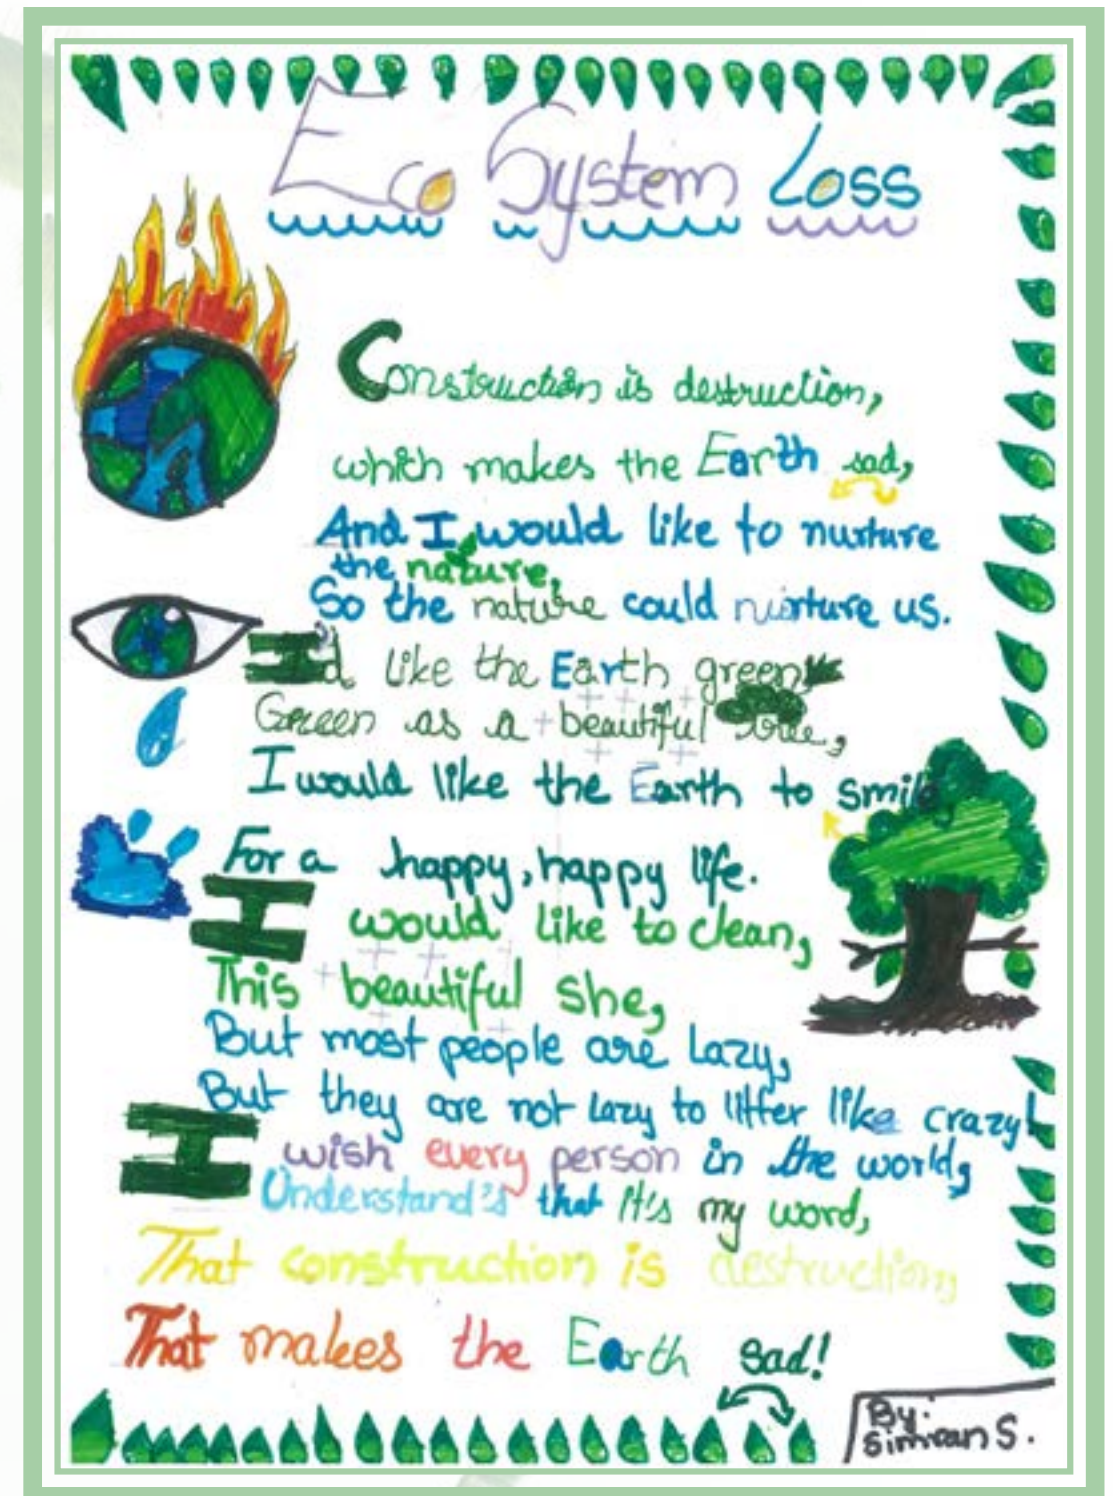 Eco System Loss
Construction is destruction,
which makes the Earth sad,
And I would like to nurture
the nature,
So the nature could nurture us.
I'd like the Earth green,
Green as a beautiful tree,
I would like the Earth to smile
For a happy, happy life.
I would like to clean,
This beautiful she,
But most people are lazy,
But they are not lazy to litter like crazy!
I wish every person in the world,
Understand's that it's my word,
That construction is destruction,
That makes the Earth sad!
By:
Simiran S.